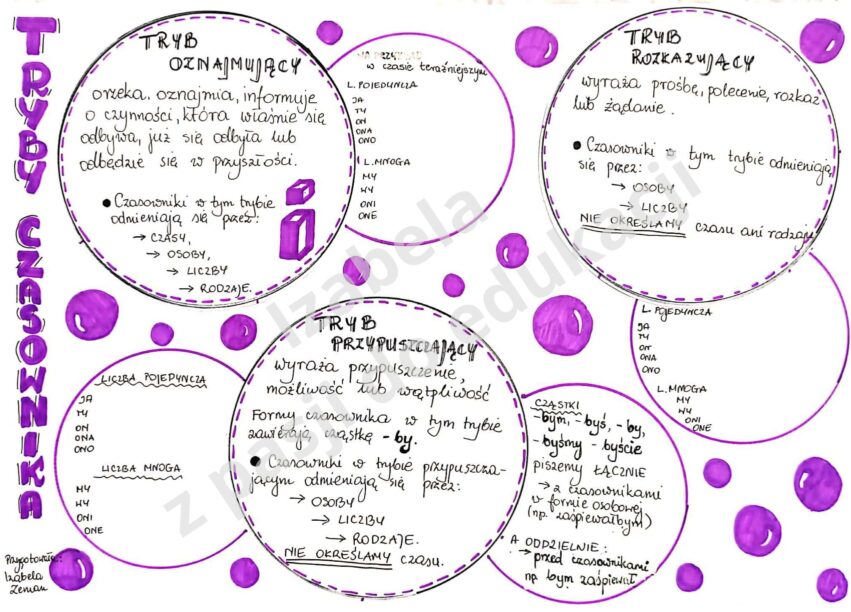 TRYBY CZASOWNIKA
TRYB
OZNAJMUJĄCY
orzeka, oznajmia, informuje
o czynności, która właśnie się
odbywa, już się odbyła lub
odbędzie się w przyszłości.
● Czasowniki w tym trybie
odmieniają się przez:
→ CZASY,
→ OSOBY,
→ LICZBY
→ RODZAJE.
w czasie teraźniejszym
L. POJEDYNCZA
JA
TY
ON
ONA
ONO
L. MNOGA
MY
WY
ONI
ONE
TRYB
ROZKAZUJĄCY
wyraża prośbę, polecenie, rozkaz
lub żądanie.
● Czasowniki w tym trybie odmieniają
się przez:
→ OSOBY
→ LICZBY
NIE OKREŚLAMY czasu ani rodzaju
L. POJEDYNCZA
JA
TY
ON
ONA
ONO
L. MNOGA
MY
WY
ONI
ONE
TRYB
PRZYPUSZCZAJĄCY
wyraża przypuszczenie,
możliwość lub wątpliwość
Formy czasownika w tym trybie
zawierają cząstkę -by.
● Czasowniki w trybie przypuszcza-
jącym odmieniają się przez:
→ OSOBY
→ LICZBY
→ RODZAJE.
NIE OKREŚLAMY czasu.
LICZBA POJEDYNCZA
JA
TY
ON
ONA
ONO
LICZBA MNOGA
MY
WY
ONI
ONE
CZĄSTKI
-bym, -byś, -by,
-byśmy -byście
piszemy ŁĄCZNIE
→ z czasownikami
w formie osobowej
(np. zaśpiewałbym)
A ODDZIELNIE:
→ przed czasownikami
np bym zaśpiewał
Przygotowała:
Izabela
Zeman
Izabela
z pasji do edukacji